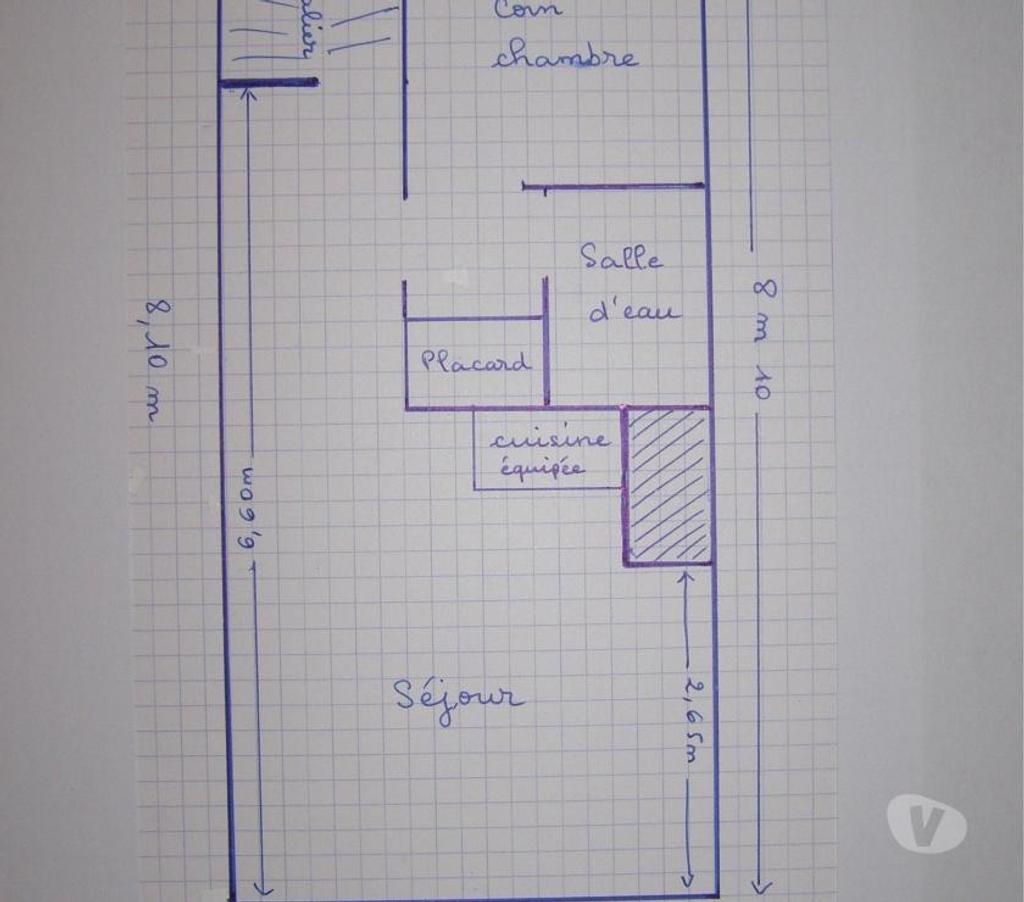 Coin
chambre
Salle
d'eau
8 m 10
8,10 m
Placard
cuisine
équipée
6,60m
Séjour
2,65m
V